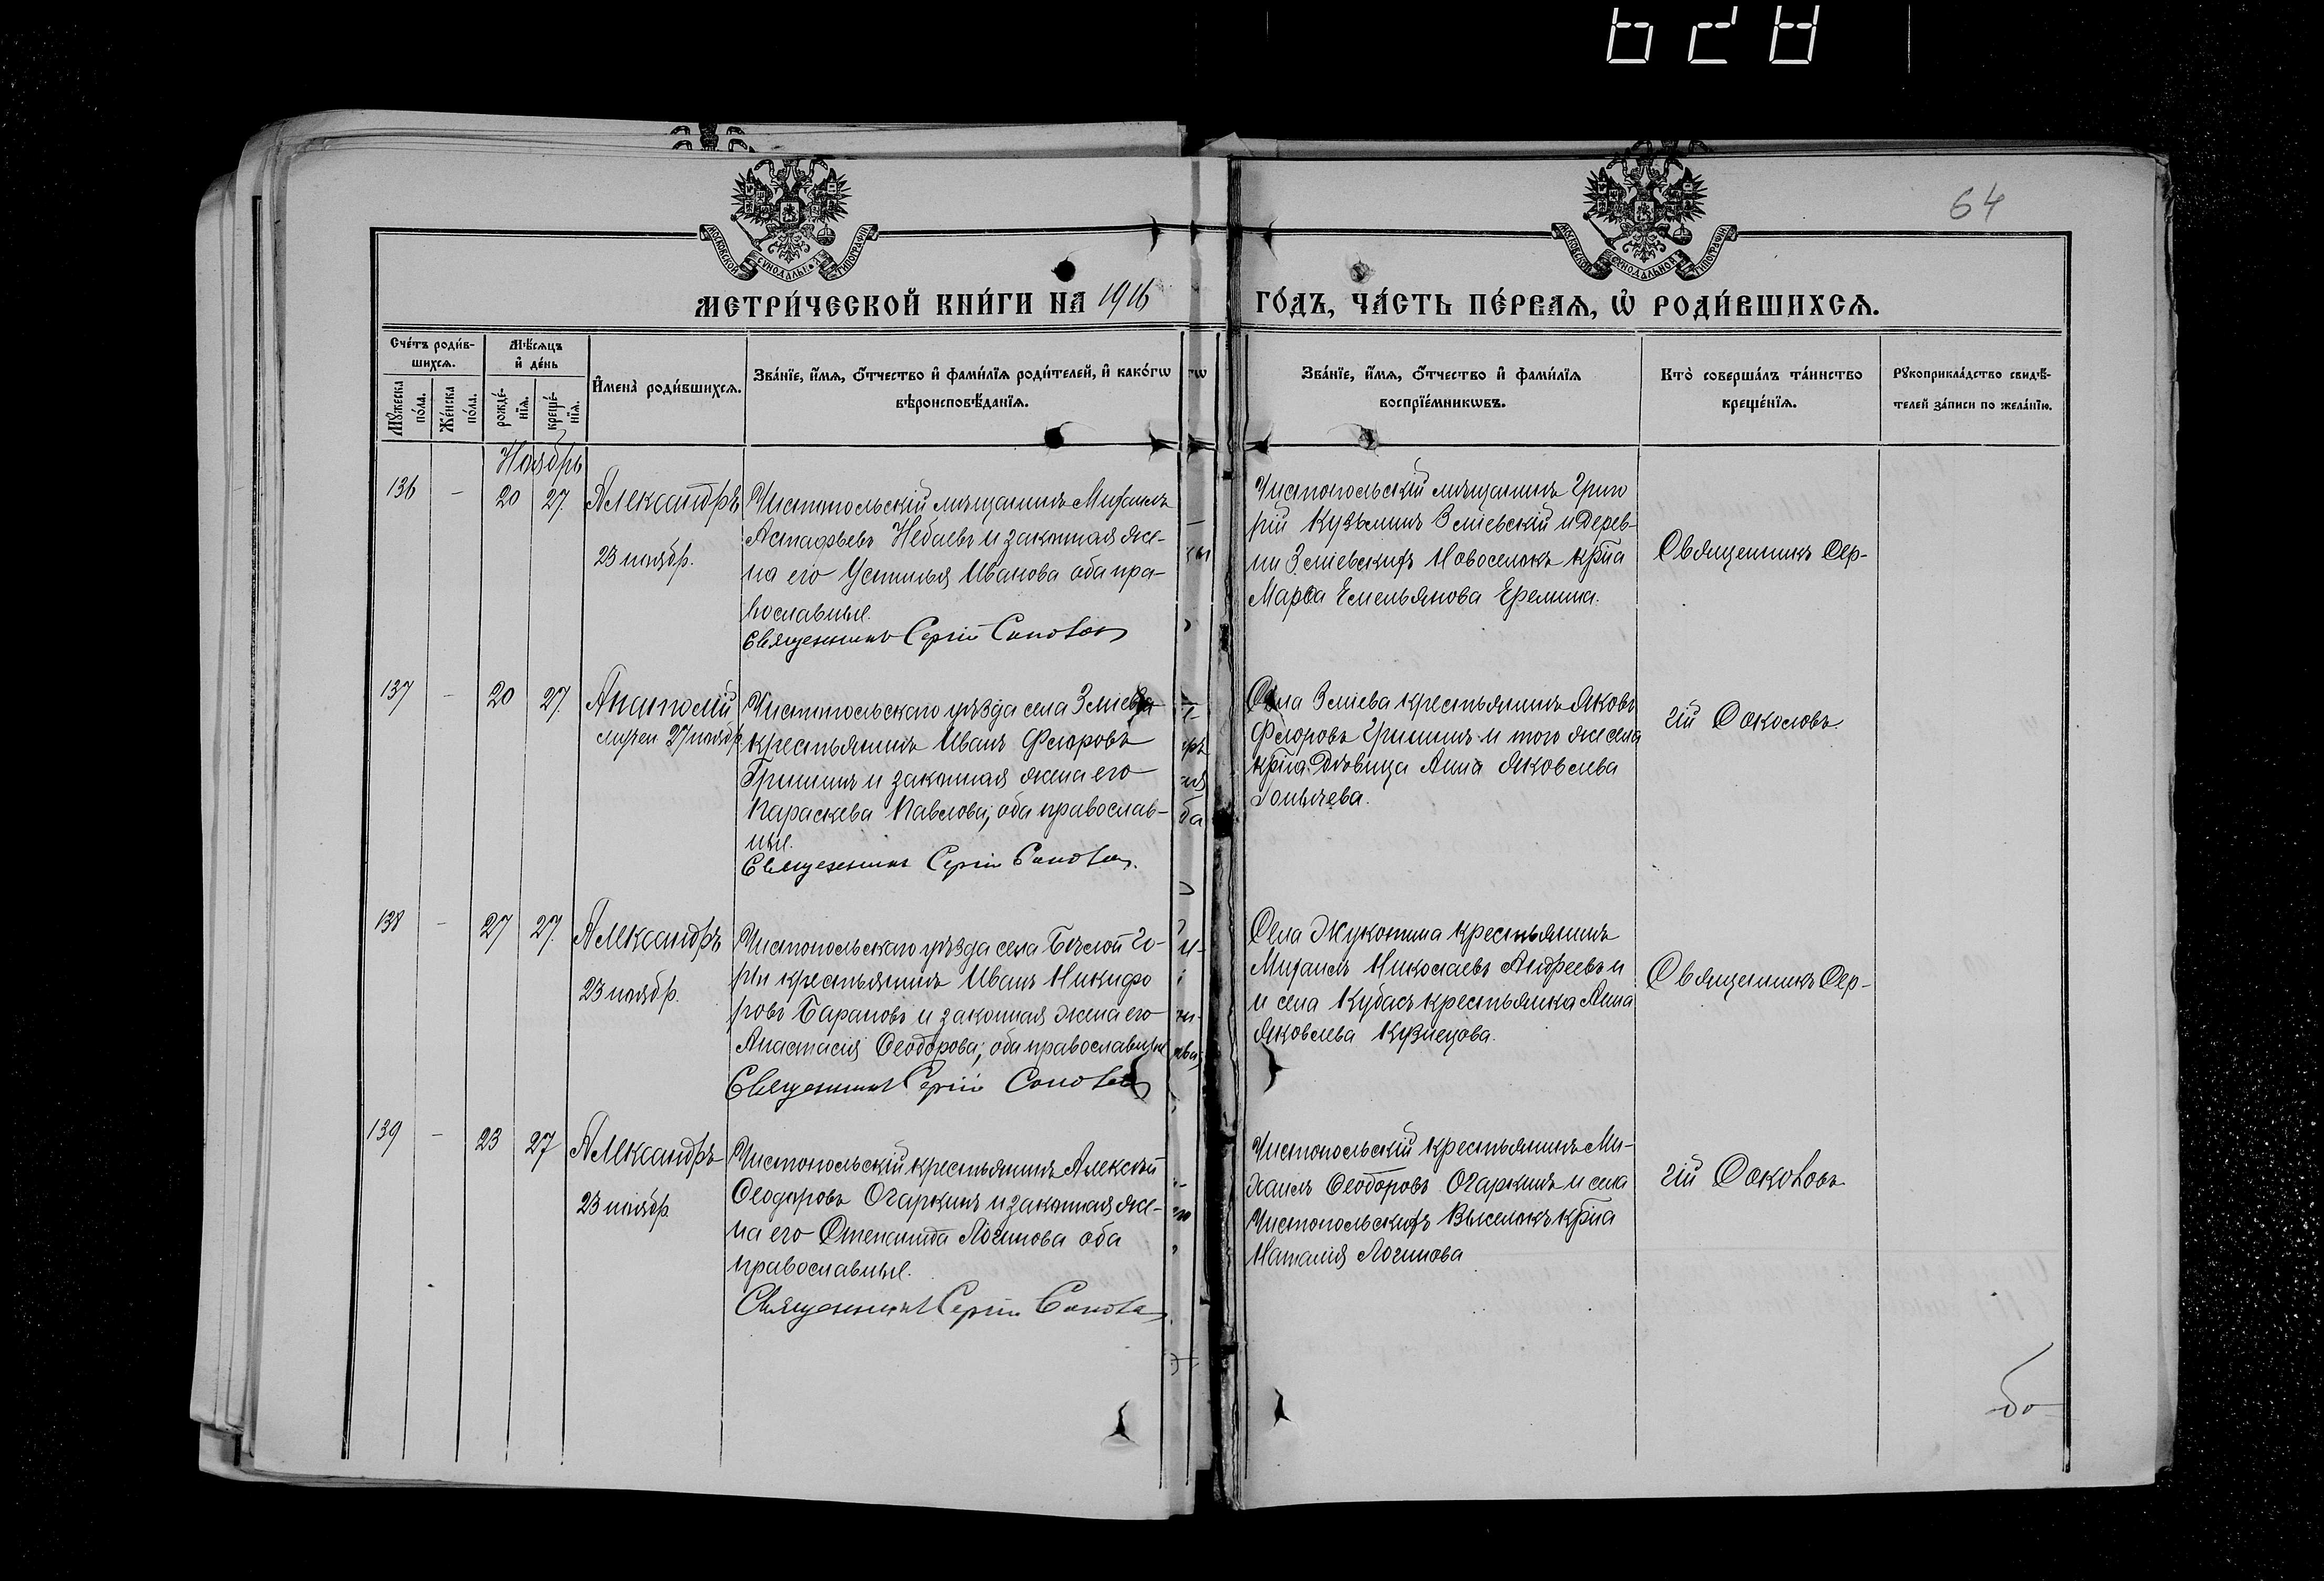 64
МОСКОВСКОЙ СѴНОДАЛЬНОЙ ТИПОГРАФІИ
МОСКОВСКОЙ СѴНОДАЛЬНОЙ ТИПОГРАФІИ
МЕТРИ́ЧЕСКОЙ КНИ́ГИ НА 1916 ГО́ДЪ, ЧА́СТЬ ПЕ́РВАЯ, Ѡ҆ РОДИ́ВШИХСѦ.
Сче́тъ роди́в-
шихсѧ.
Мꙋ́жеска по́ла.
Же́нска по́ла.
Мѣ́сѧцъ
и҆ де́нь
рожде́-
нїѧ.
креще́-
нїѧ.
И҆мена̀ роди́вшихсѧ.
Зва́нїе, и҆́мѧ, ѻ҆́тчество и҆ фами́лїѧ роди́телей, и҆ како́гѡ
вѣроисповѣ́данїѧ.
Зва́нїе, и҆́мѧ, ѻ҆́тчество и҆ фами́лїѧ
воспрїе́мникѡвъ.
Кто̀ соверша́лъ та́инство
креще́нїѧ.
Рꙋкоприкла́дство свидѣ́-
телей за́писи по жела́нїю.
Ноябрь
136 - 20 27. Александръ
23 ноябр.
Чистопольскій мѣщанинъ Михаилъ
Астафьевъ Небаевъ и законная же-
на его Устинья Иванова оба пра-
вославные.
Священникъ Сергій Соколов
Чистопольскій мѣщанинъ Григо
рій Кузьминъ Зміевскій и дерев-
ни Зміевскихъ Новоселокъ кр҃на
Марѳа Емельянова Еремина.
Священникъ Сер-
137 - 20 27 Анатолій
27 ноябр
Чистопольскаго уѣзда села Зміева
крестьянинъ Иванъ Ѳеодоровъ
Гришинъ и законная жена его
Параскева Павлова; оба православ-
ные.
Священникъ Сергій Соколов.
Села Зміева крестьянинъ Яковъ
Ѳеодоровъ Гришинъ и того же села
кр҃на дѣвица Анна Яковлева
гій Соколовъ.
138 - 27 27. Александръ
23 ноябр.
Чистопольскаго уѣзда села Бѣлой Го-
ры крестьянинъ Иванъ Никифо
ровъ Барановъ и законная жена его
Анастасія Ѳеодорова; оба православные
Священникъ Сергій Соколов
Села Жукотина крестьянинъ
Михаилъ Николаевъ Андреевъ и
и села Кубасъ крестьянка Анна
Яковлева Кузнецова.
Священникъ Сер-
139 - 23 27 Александръ
23 ноябр.
Чистопольскій крестьянинъ Алексѣй
Ѳеодоровъ Огаркинъ и законная же-
на его Степанида Логинова оба
православные.
Священникъ Сергій Соколов
Чистопольскій крестьянинъ Ми-
хаилъ Ѳеодоровъ Огаркинъ и села
Чистопольскихъ Выселокъ кр҃на
Наталія Логинова
гій Соколовъ